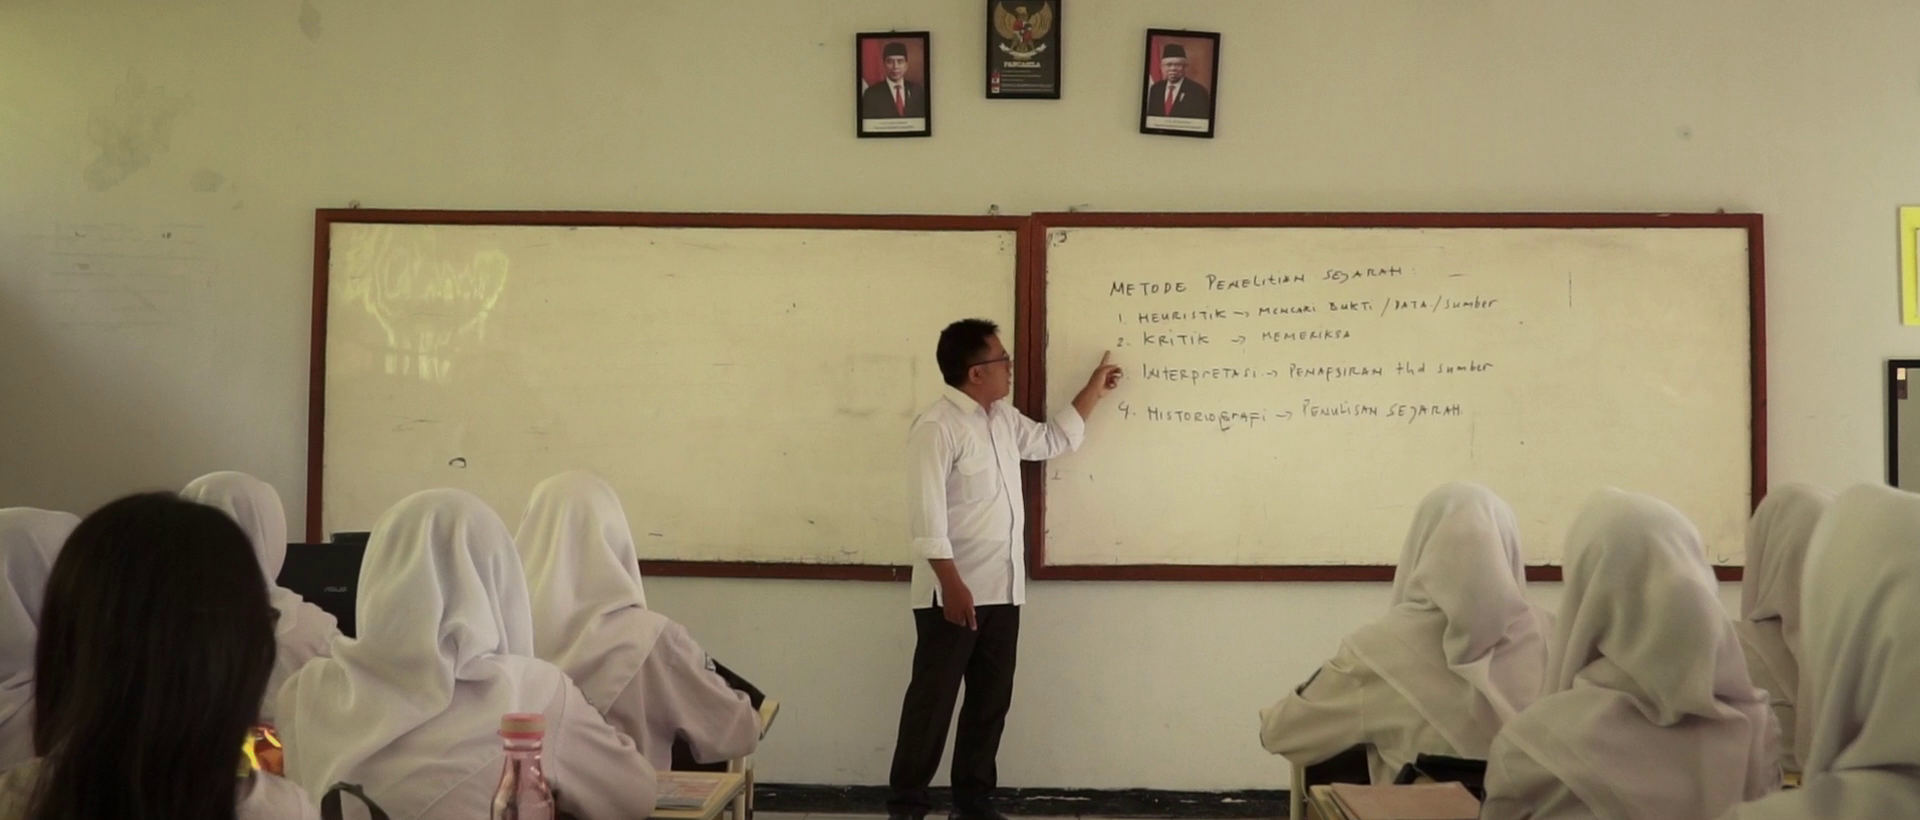 PANCASILA
METODE PENELITIAN SEJARAH :
1. HEURISTIK → MENCARI BUKTI / DATA / sumber
2. KRITIK → MEMERIKSA
INTERPRETASI → PENAFSIRAN thd sumber
4. HISTORIOGRAFI → PENULISAN SEJARAH
ASUS